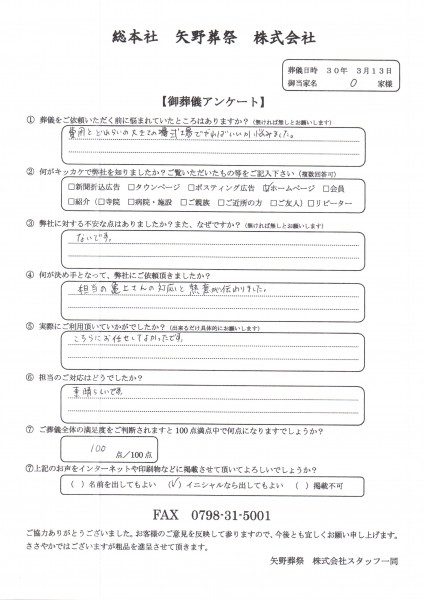 総本社 矢野葬祭 株式会社
葬儀日時 30年 3月13日
御当家名 O 家様
【御葬儀アンケート】
① 葬儀をご依頼いただく前に悩まれていたところはありますか?(無ければ無しとお願いします)
費用とどれくらいの大きさの場でやればいいか悩みました。
② 何がキッカケで弊社を知りましたか?ご覧いただいたもの等をご記入下さい(複数回答可)
□新聞折込広告 □タウンページ □ポスティング広告 ☑ホームページ □会員
□紹介(□寺院 □病院・施設 □ご親族 □ご近所の方 □ご友人)□リピーター
③ 弊社に対する不安な点はありましたか?また、なぜですか?(無ければ無しとお願いします)
ないです。
④ 何が決め手となって、弊社にご依頼頂きましたか?
担当の 上さんの対応と熱意が伝わりました。
⑤ 実際にご利用頂いていかがでしたか?(出来るだけ具体的にお願いします)
こちらにお任せしてよかったです。
⑥ 担当のご対応はどうでしたか?
素晴らしいです。
⑦ ご葬儀全体の満足度をご判断されますと100点満点中で何点になりますでしょうか?
100 点/100点
⑦上記のお声をインターネットや印刷物などに掲載させて頂いてよろしいでしょうか?
( )名前を出してもよい (✓)イニシャルなら出してもよい ( )掲載不可
FAX 0798-31-5001
ご協力ありがとうございました。お客様のご意見を反映して参りますので、今後とも宜しくお願い申し上げます。
ささやかではございますが粗品を進呈させて頂きます。
矢野葬祭 株式会社スタッフ一同